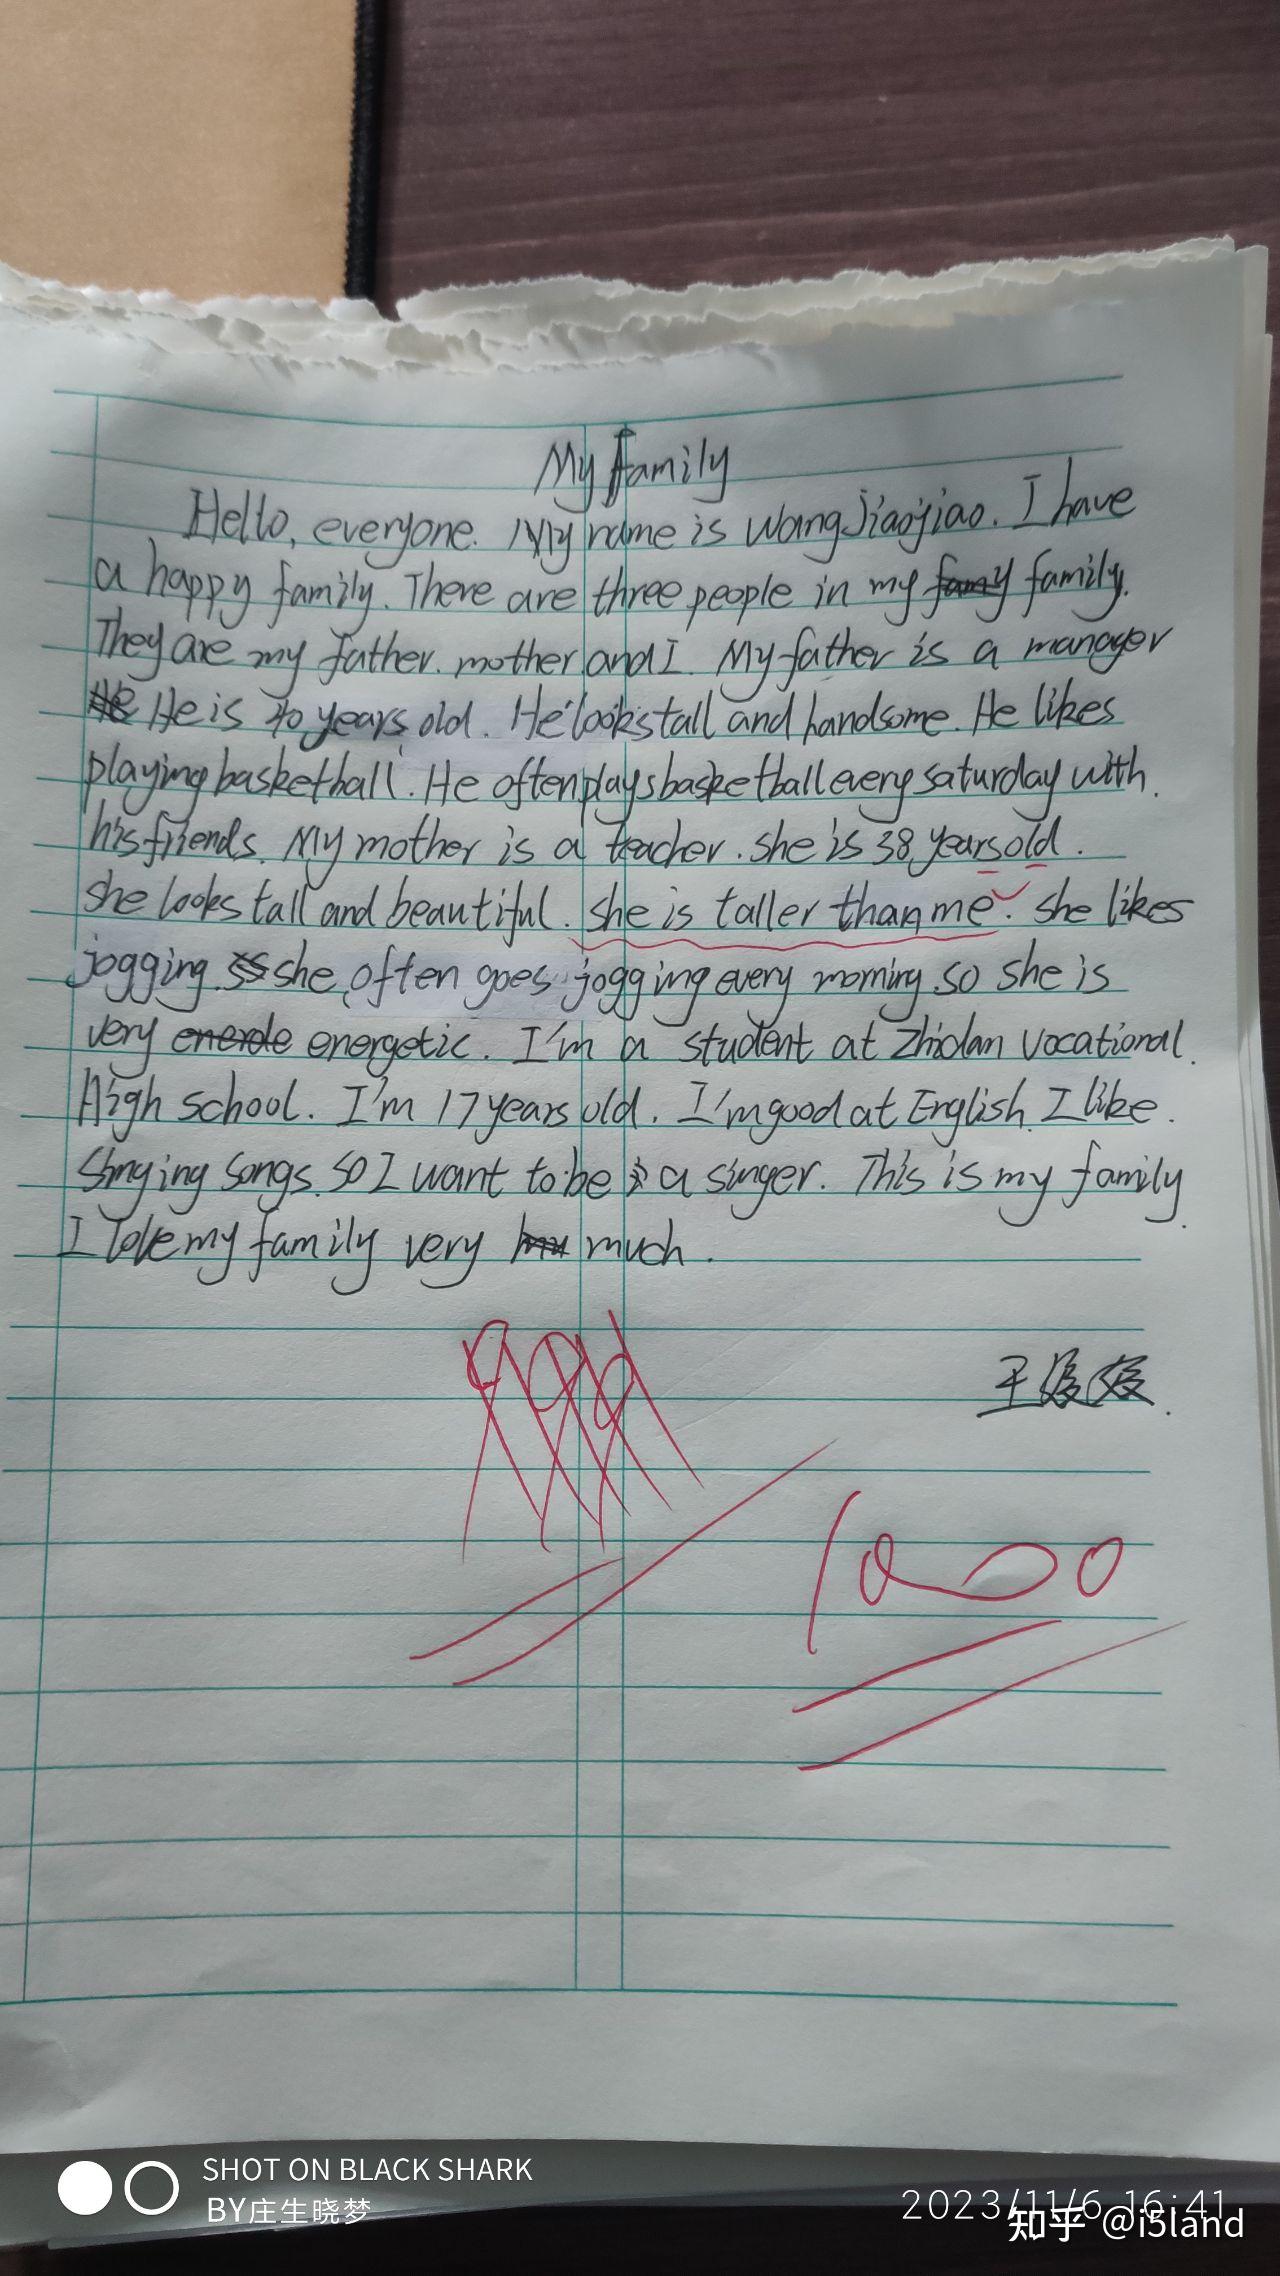 My Family
Hello, everyone. My name is Wang Jiaojiao. I have
a happy family. There are three people in my family.
They are my father. mother and I. My father is a manager
He is 40 years old. He looks tall and handsome. He likes
playing basketball. He often plays basketball every saturday with
his friends. My mother is a teacher. she is 38 years old.
she looks tall and beautiful. she is taller than me. she likes
jogging. she often goes jogging every morning. so she is
very energetic. I'm a student at Zhidan vocational
High school. I'm 17 years old. I'm good at English. I like
Singing songs. so I want to be a singer. This is my family.
I love my family very much.
王姣姣.
100
SHOT ON BLACK SHARK
BY庄生晓梦
2023/11/6 16:41
知乎 @i5land